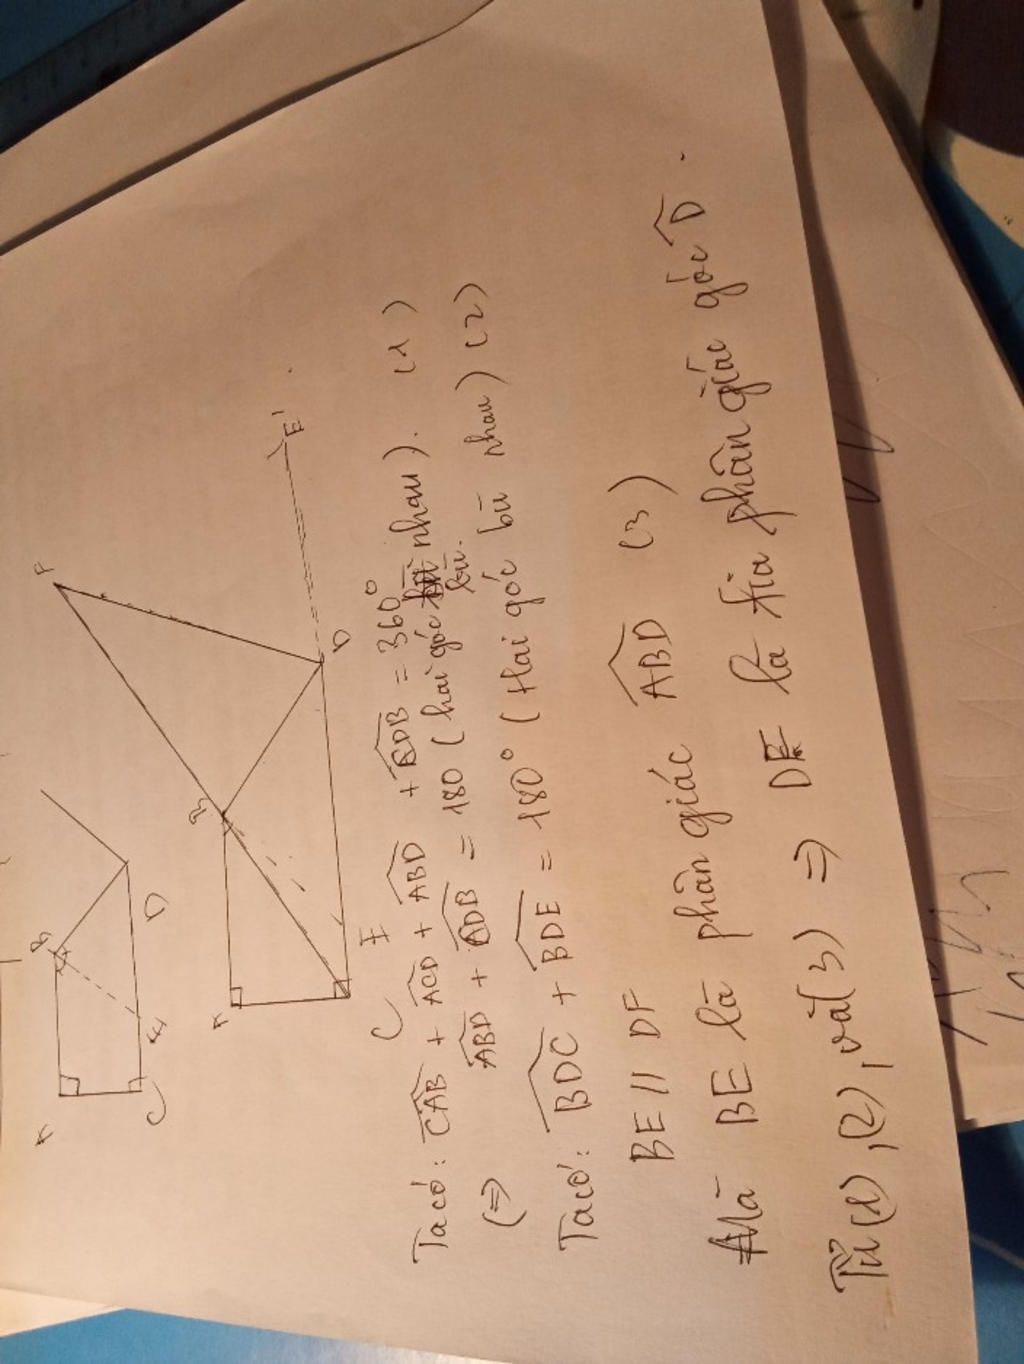 A
B
C
E
D
A
B
F
C
E
D
E'
Ta có: CAB + ACD + ABD + CDB = 360°
(=) ABD + CDB = 180 (hai góc nhau). (1)
bù.
Ta có: BDC + BDE = 180° (Hai góc bù nhau) (2)
BE // DF
Mà BE là phân giác ABD (3)
Từ (1), (2), và (3) => DF là tia phân giác góc D.